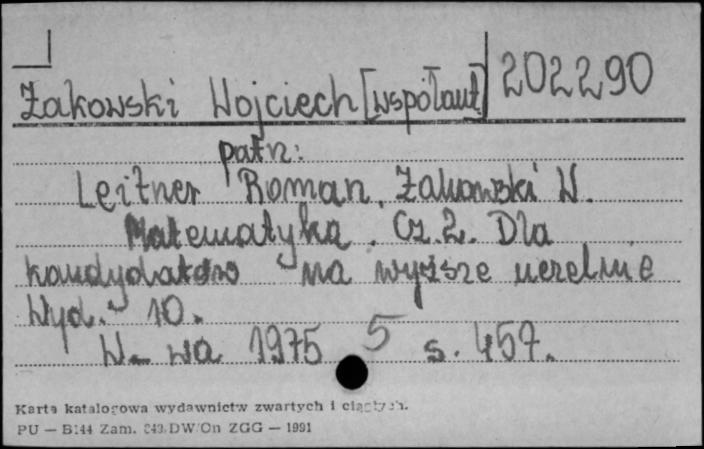 Żakowski Wojciech [współaut] 202290
patrz:
Leitner Roman, Żakowski W.
Matematyka. Cz. 2. Dla
kandydatów na wyższe uczelnie
Wyd. 10.
W-wa 1975 5 s. 457.
Karta katalogowa wydawnictw zwartych i ciągłych.
PU — B144 Zam. DW/On ZGG — 1991